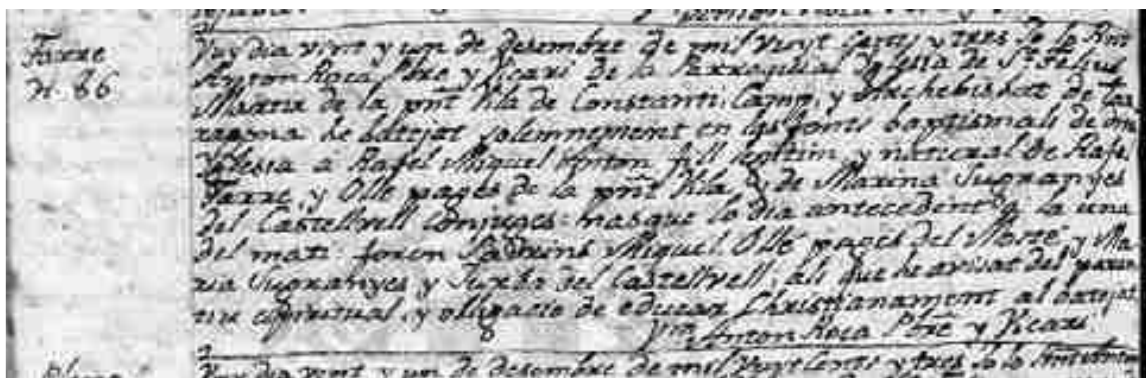 Farre
N. 86
Vuy dia vint y un de desembre de mil vuyt cents y tres Jo lo Rnt
Anton Roca Pbre y Vicari de la Parroquial Yglesia de St. Feliu
Martir de la pnt Vila de Constanti, Camp, y Archebisbat de Tar
ragona he batejat solemnement en las fonts baptismals de
Yglesia a Rafel Miquel Anton fill legitim, y natural de Rafel
Farre, y Olle pages de la pnt Vila, y de Marina Sugranyes
del Castellvell conjuges: nasque lo dia antecedent a la una
del mati: foren Padrins Miquel Olle pages del Morte, y Ma
ria Sugranyes y del Castellvell, als que he avisat del paren
tiu espiritual, y obligacio de educar Christianament al batejat
Anton Roca Pbre y Vicari
Vuy dia vint y un de desembre de mil vuyt cents y tres Jo lo